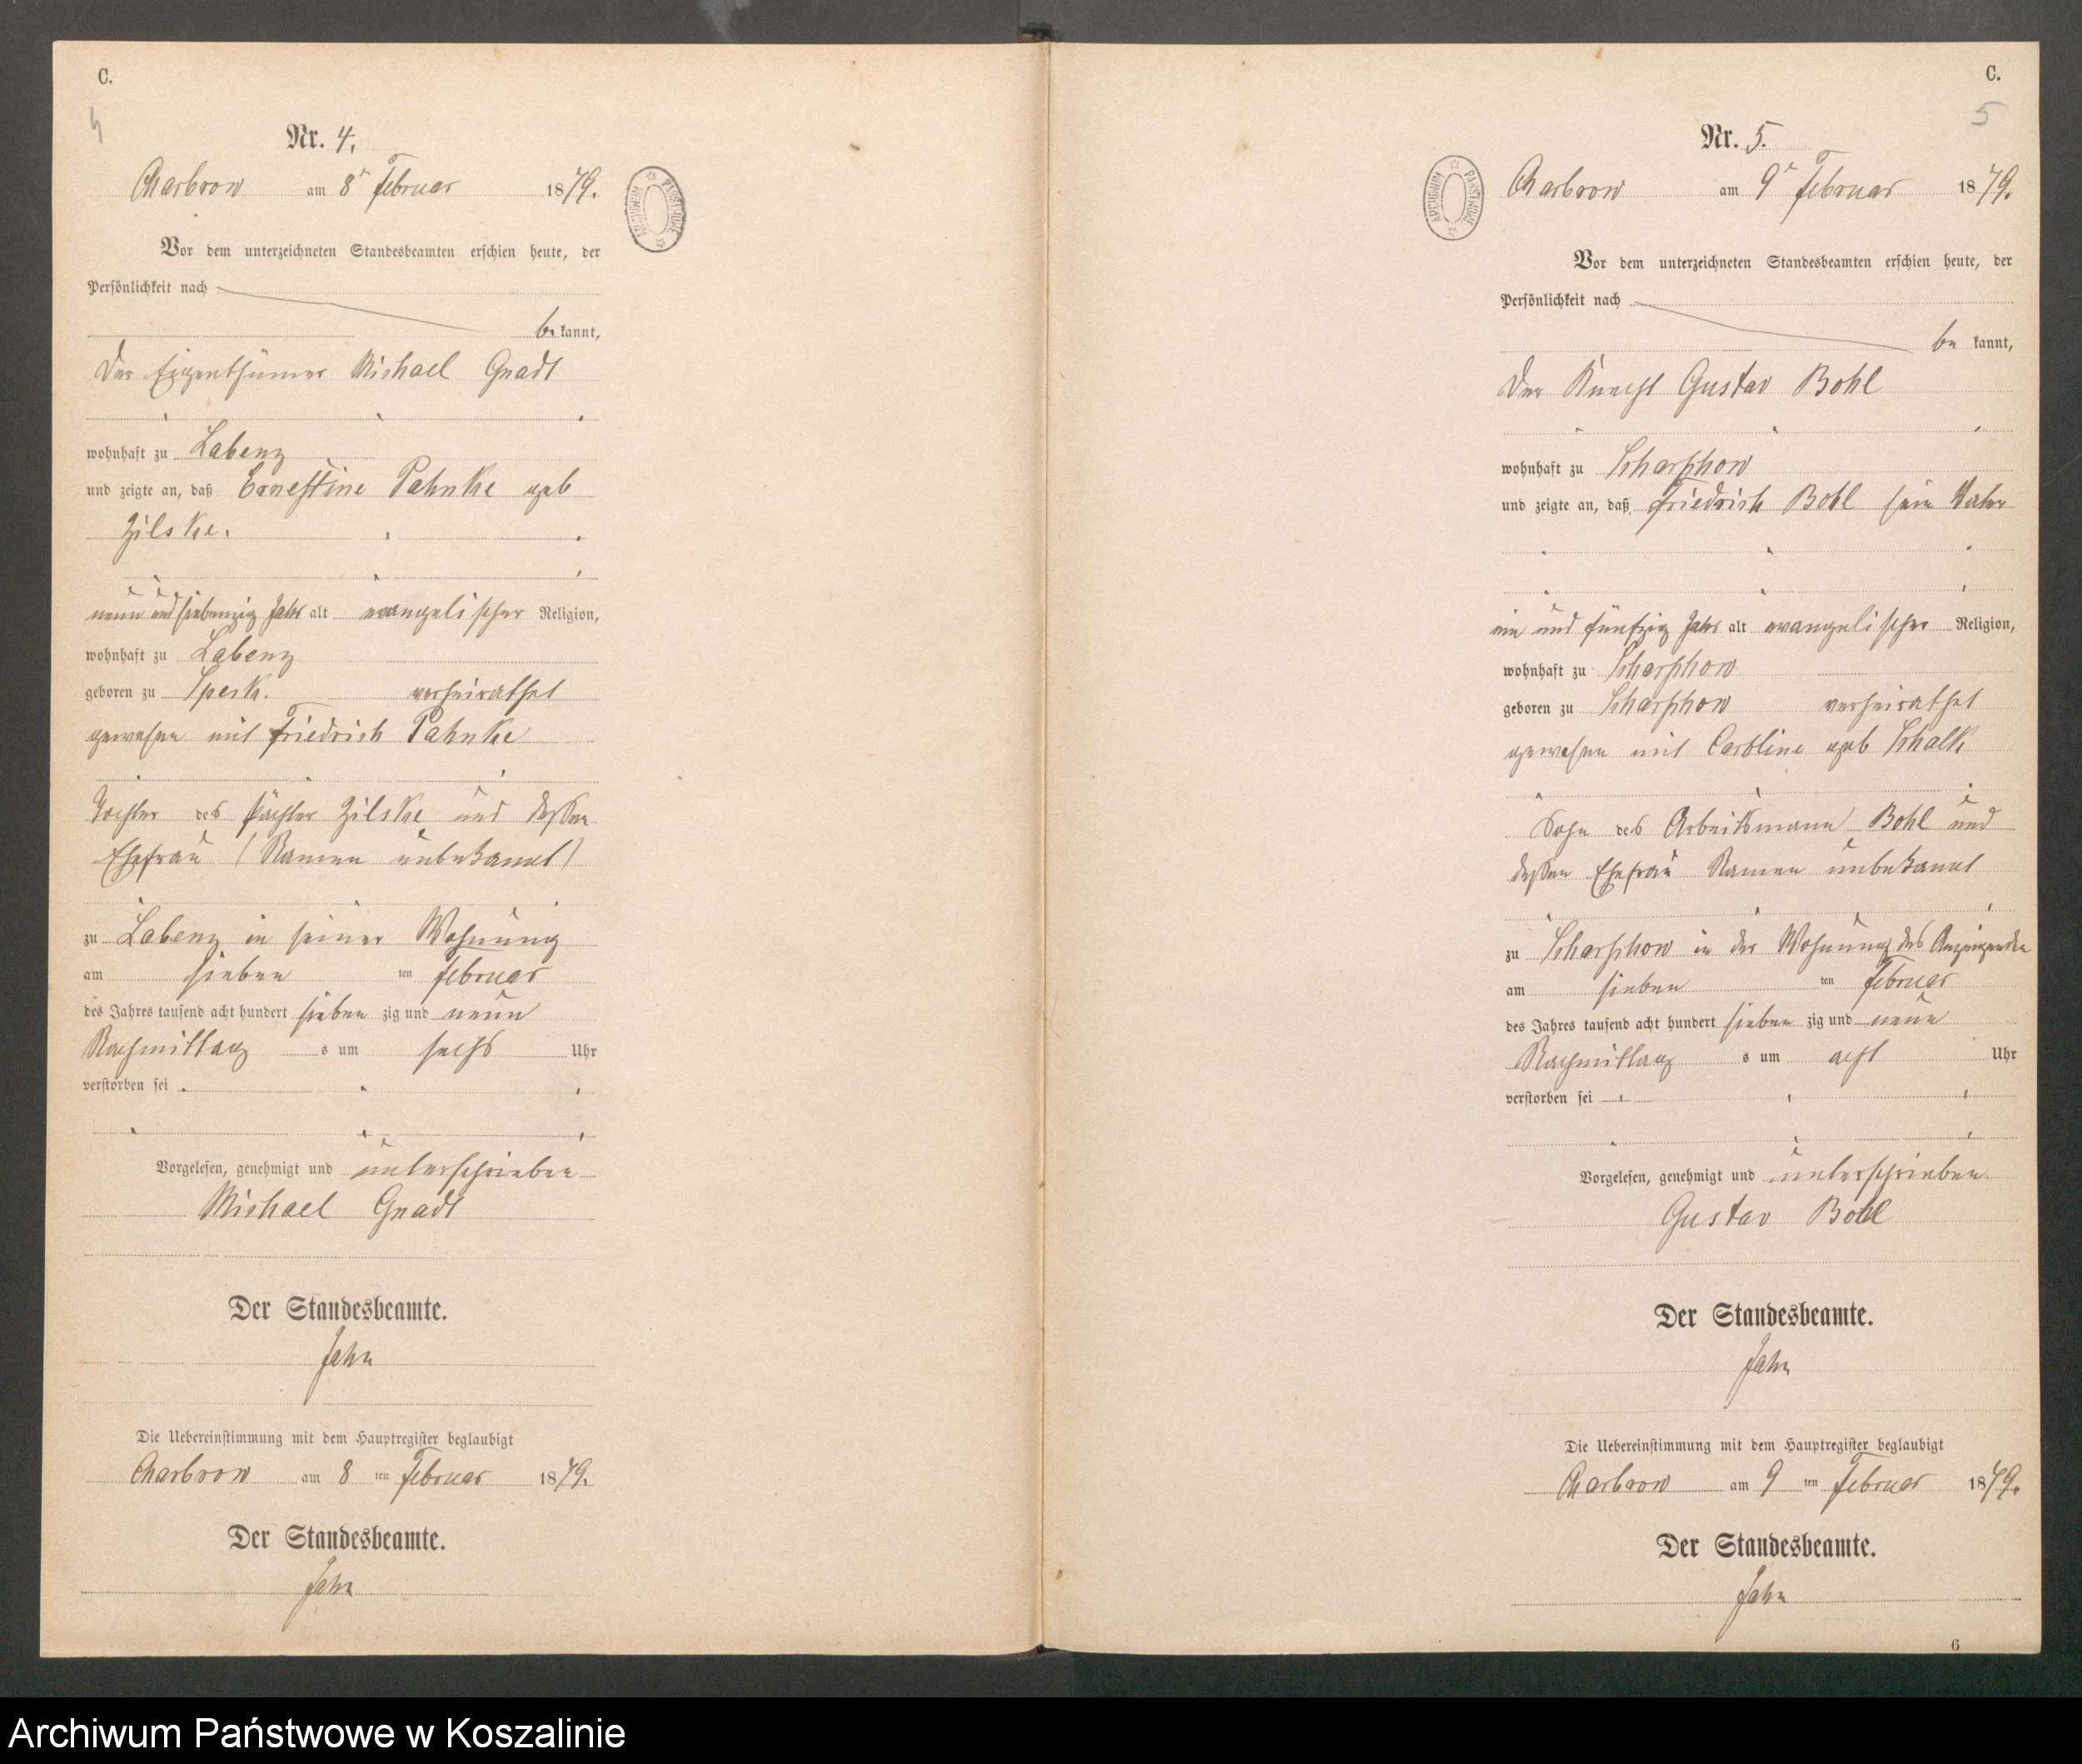 C.
4
Nr. 4.
Charbrow am 8ᵗ Februar 1879.
Vor dem unterzeichneten Standesbeamten erschien heute, der
Persönlichkeit nach
be kannt,
Der Eigenthümer Michael Gnadt
wohnhaft zu Labenz
und zeigte an, daß Ernestine Pahnke geb
Zilske.
neun und siebenzig Jahr alt evangelischer Religion,
wohnhaft zu Labenz
geboren zu Speck. verheirathet
gewesen mit Friedrich Pahnke
Tochter des Pächter Zilske und dessen
Ehefrau (Namen unbekannt)
zu Labenz in seiner Wohnung
am sieben ten Februar
des Jahres tausend acht hundert sieben zig und neun
Nachmittag s um sechs Uhr
verstorben sei
Vorgelesen, genehmigt und unterschrieben
Michael Gnadt
Der Standesbeamte.
Jahn
Die Uebereinstimmung mit dem Hauptregister beglaubigt
Charbrow am 8 ten Februar 1879.
Der Standesbeamte.
Jahn
ARCHIWUM PAŃSTWOWE
C.
5
Nr. 5.
Charbrow am 9ᵗ Februar 1879.
Vor dem unterzeichneten Standesbeamten erschien heute, der
Persönlichkeit nach
be kannt,
Der Knecht Gustav Bohl
wohnhaft zu Scharschow
und zeigte an, daß Friedrich Bohl sein Vater
ein und fünfzig Jahr alt evangelischer Religion,
wohnhaft zu Scharschow
geboren zu Scharschow verheirathet
gewesen mit Caroline geb Schalk
Sohn des Arbeitsmann Bohl und
dessen Ehefrau Namen unbekannt
zu Scharschow in der Wohnung des Anzeigenden
am sieben ten Februar
des Jahres tausend acht hundert sieben zig und neun
Nachmittag s um acht Uhr
verstorben sei
Vorgelesen, genehmigt und unterschrieben
Gustav Bohl
Der Standesbeamte.
Jahn
Die Uebereinstimmung mit dem Hauptregister beglaubigt
Charbrow am 9 ten Februar 1879.
Der Standesbeamte.
Jahn
6
ARCHIWUM PAŃSTWOWE
Archiwum Państwowe w Koszalinie